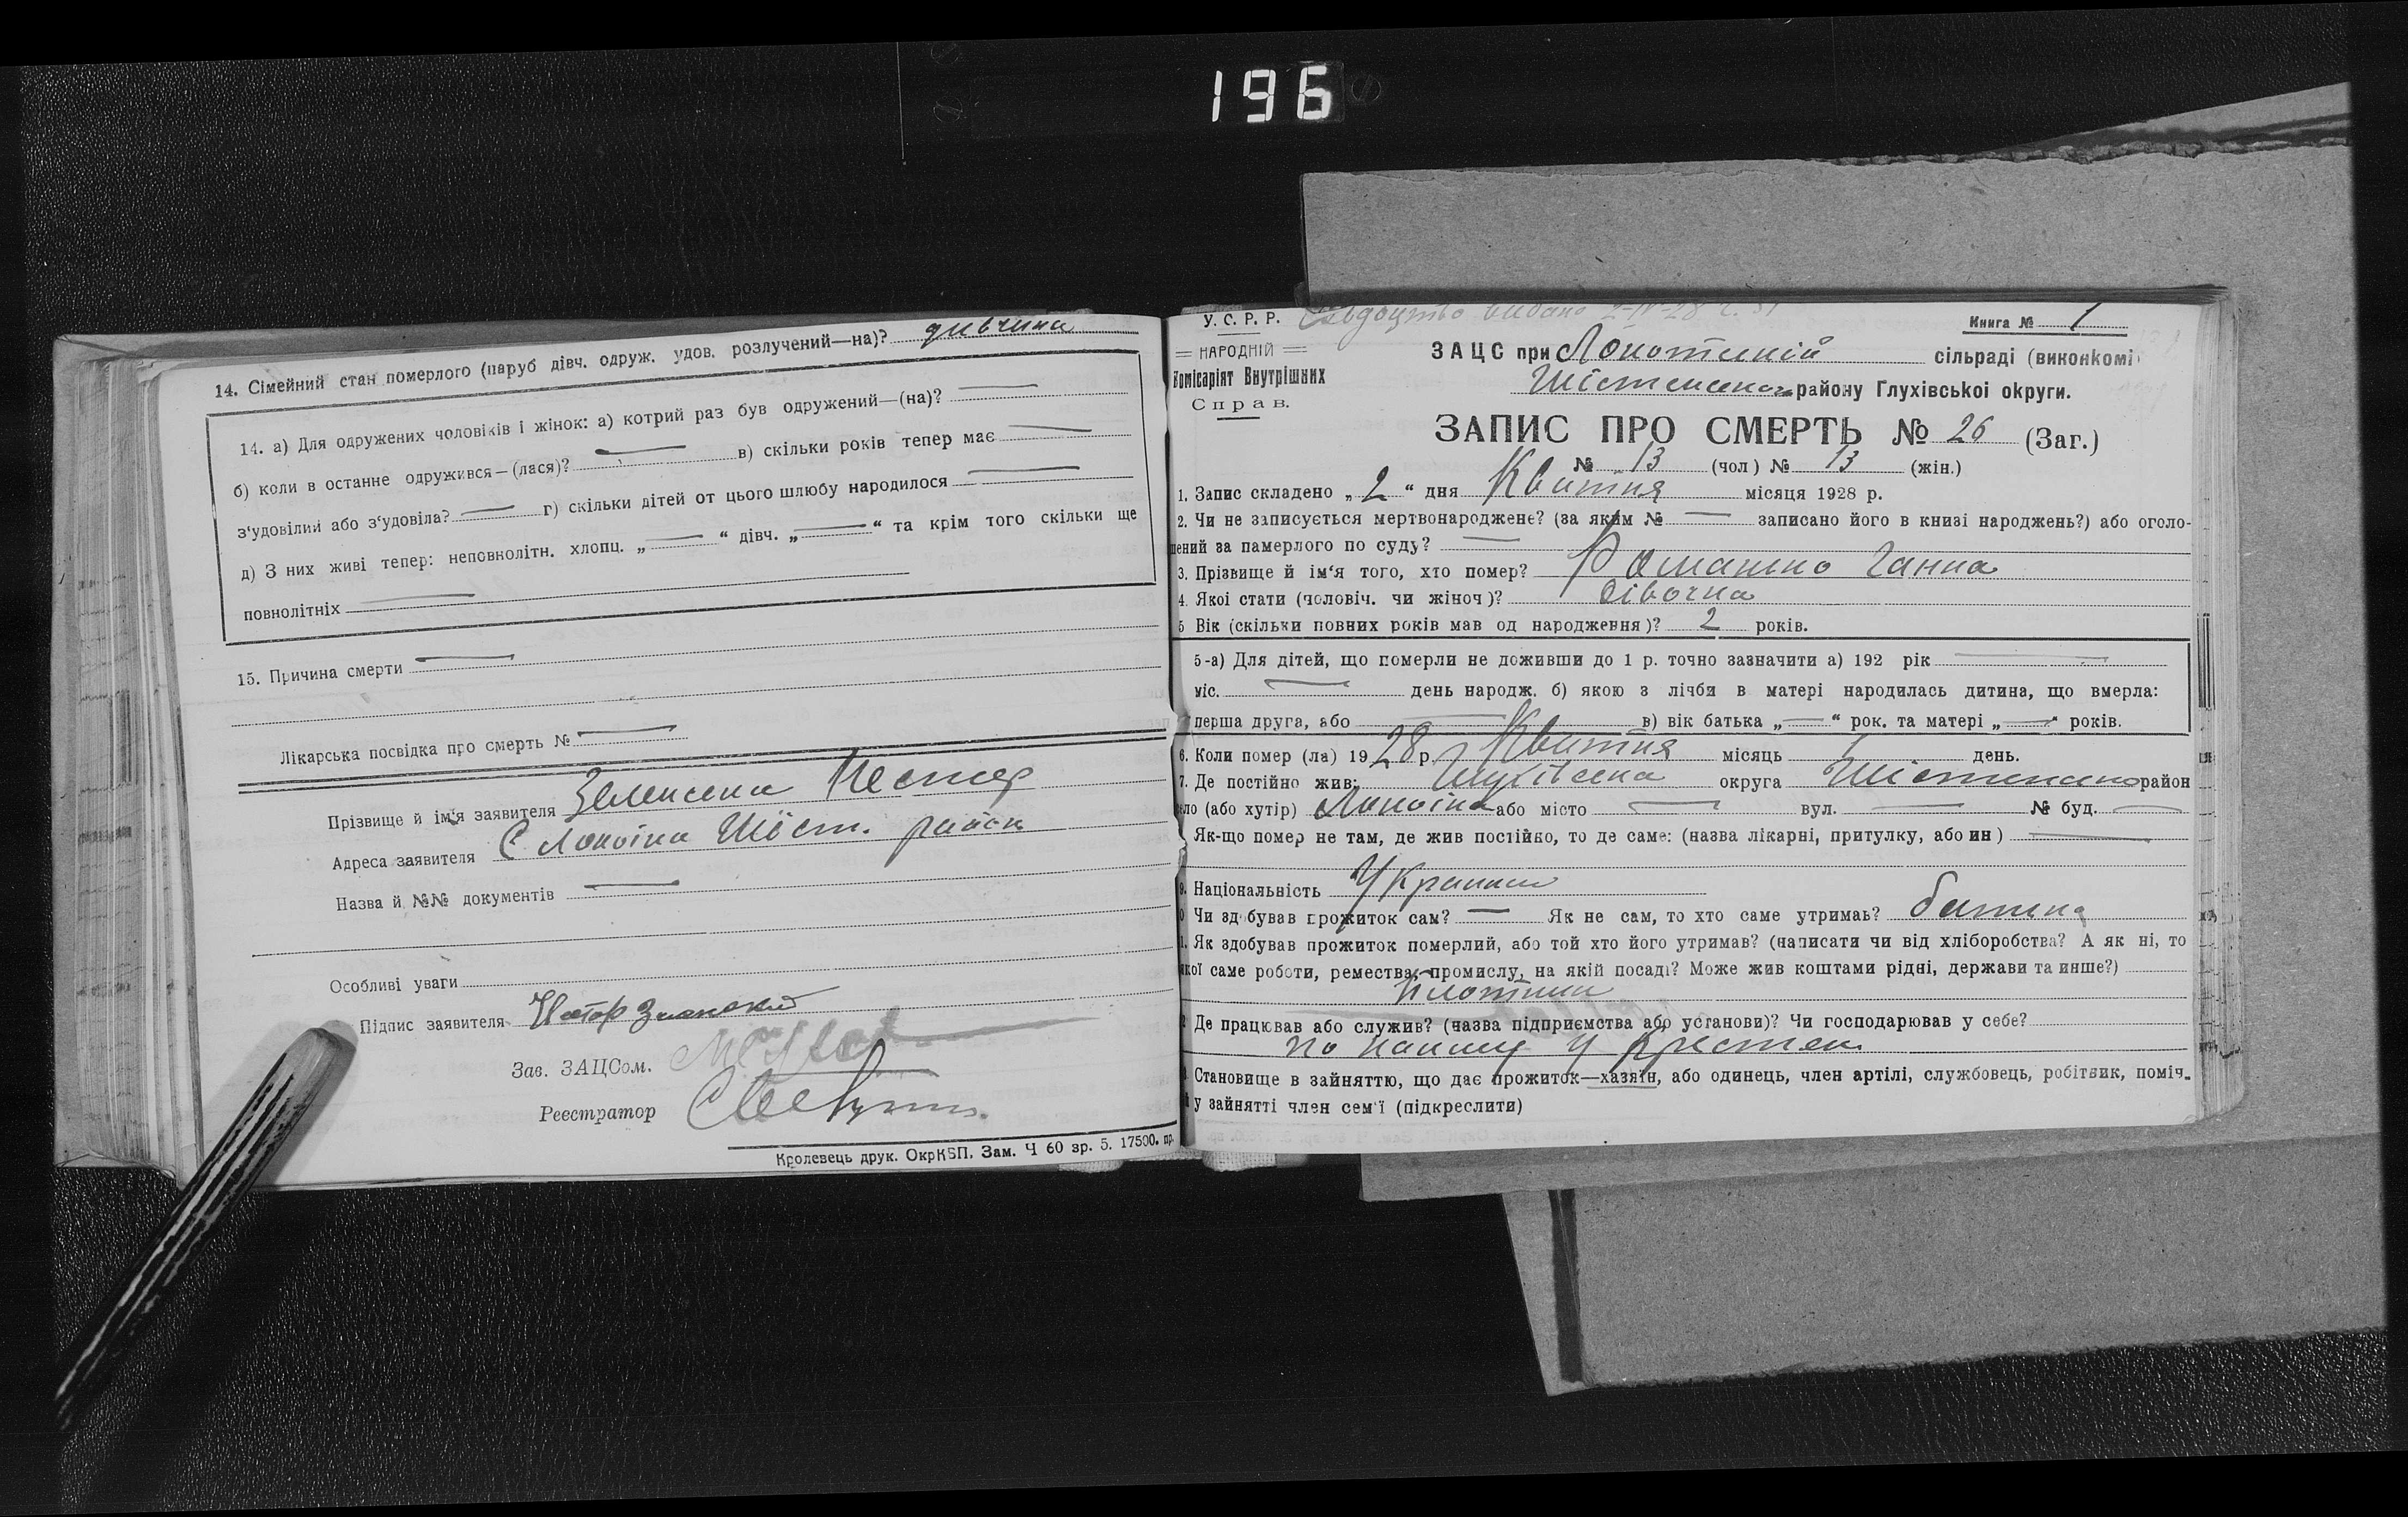 196
14. Сімейний стан померлого (паруб дівч. одруж. удов. розлучений—на)? дивчина
14. а) Для одружених чоловіків і жінок: а) котрий раз був одружений—(на)? —
б) коли в останне одружився—(лася)? — в) скільки років тепер має —
з‘удовілий або з‘удовіла? — г) скільки дітей от цього шлюбу народилося —
д) З них живі тепер: неповнолітн. хлопц. „ — “ дівч. „ — “ та крім того скільки ще
повнолітніх —
15. Причина смерти —
Лікарська посвідка про смерть № —
Прізвище й ім‘я заявителя Нестер
Адреса заявителя С Локоїна Шіст. район
Назва й №№ документів —
Особливі уваги
Підпис заявителя
Зав. ЗАЦСом.
Реестратор
Кролевець друк. ОкрКБП. Зам. Ч 60 зр. 5. 17500. пр.
У. С. Р. Р. видано 2-IV-28
Книга № 1
НАРОДНІЙ
Комісаріят Внутрішних
Справ.
ЗАЦС при сільраді (виконкомі
району Глухівської округи.
ЗАПИС ПРО СМЕРТЬ № 26 (Заг.)
№ 13 (чол) № 13 (жін.)
1. Запис складено „ 2 “ дня Квитня місяця 1928 р.
2. Чи не записується мертвонароджене? (за яким № — записано його в книзі народжень?) або оголо-
шений за памерлого по суду? —
3. Прізвище й ім‘я того, хто помер? Ромашко Ганна
4. Якої стати (чоловіч. чи жіноч)? дівочка
5 Вік (скільки повних років мав од народження)? 2 років.
5-а) Для дітей, що померли не доживши до 1 р. точно зазначити а) 192 рік —
міс. — день народж. б) якою з лічби в матері народилась дитина, що вмерла:
перша друга, або — в) вік батька „—“ рок. та матері „—“ років.
6. Коли помер (ла) 19 28 р. Квитня місяць 1 день.
7. Де постійно жив: округа район
село (або хутір) Локоїна або місто — вул. — № буд. —
Як-що помер не там, де жив постійно, то де саме: (назва лікарні, притулку, або ин) —
9. Національність
Чи здобував прожиток сам? — Як не сам, то хто саме утримав? батька
Як здобував прожиток померлий, або той хто його утримав? (написати чи від хліборобства? А як ні, то
якої саме роботи, ремества, промислу, на якій посаді? Може жив коштами рідні, держави та инше?)
плотник
Де працював або служив? (назва підприємства або установи)? Чи господарював у себе?
по найму у
Становище в зайняттю, що дає прожиток—хазяїн, або одинець, член артілі, службовець, робітвик, поміч-
у зайнятті член сем‘ї (підкреслити)